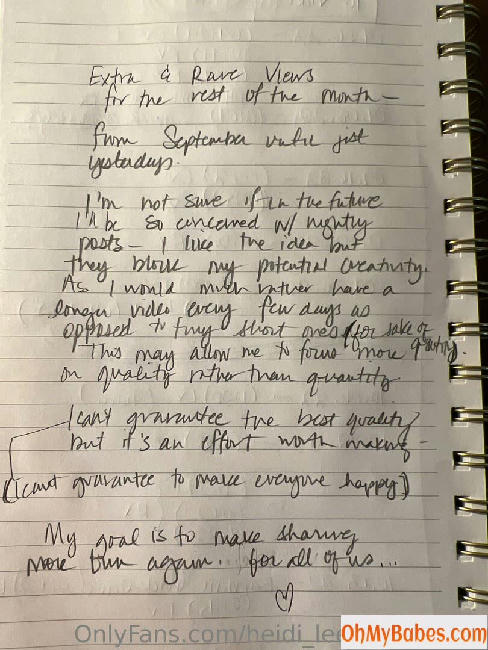 Extra & Rare Views
for the rest of the month –
from September until just
yesterdays.
I'm not sure if in the future
I'll be so concerned w/ nightly
posts – I like the idea but
they block my potential creativity.
As I would much rather have a
longer video every few days as
opposed to tiny short ones (for sake of
This may allow me to focus more
on quality rather than quantity
I can't guarantee the best quality
but it's an effort worth making –
(I cant guarantee to make everyone happy)
My goal is to make sharing
more fun again... for all of us...
♡
OnlyFans.com/heidi_le
OhMyBabes.com